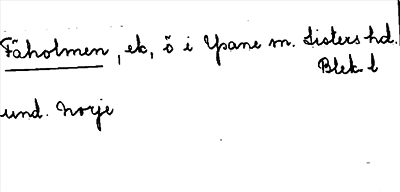 Fäholmen, ek, ö i Ysane m. Listers hd.
Blek. l
und. Norje